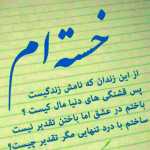 خسته ام
از این زندان که نامش زندگیست
پس قشنگی های دنیا مال کیست ؟
باختم در عشق اما باختن تقدیر نیست
ساختم با درد تنهایی مگر تقدیر چیست؟